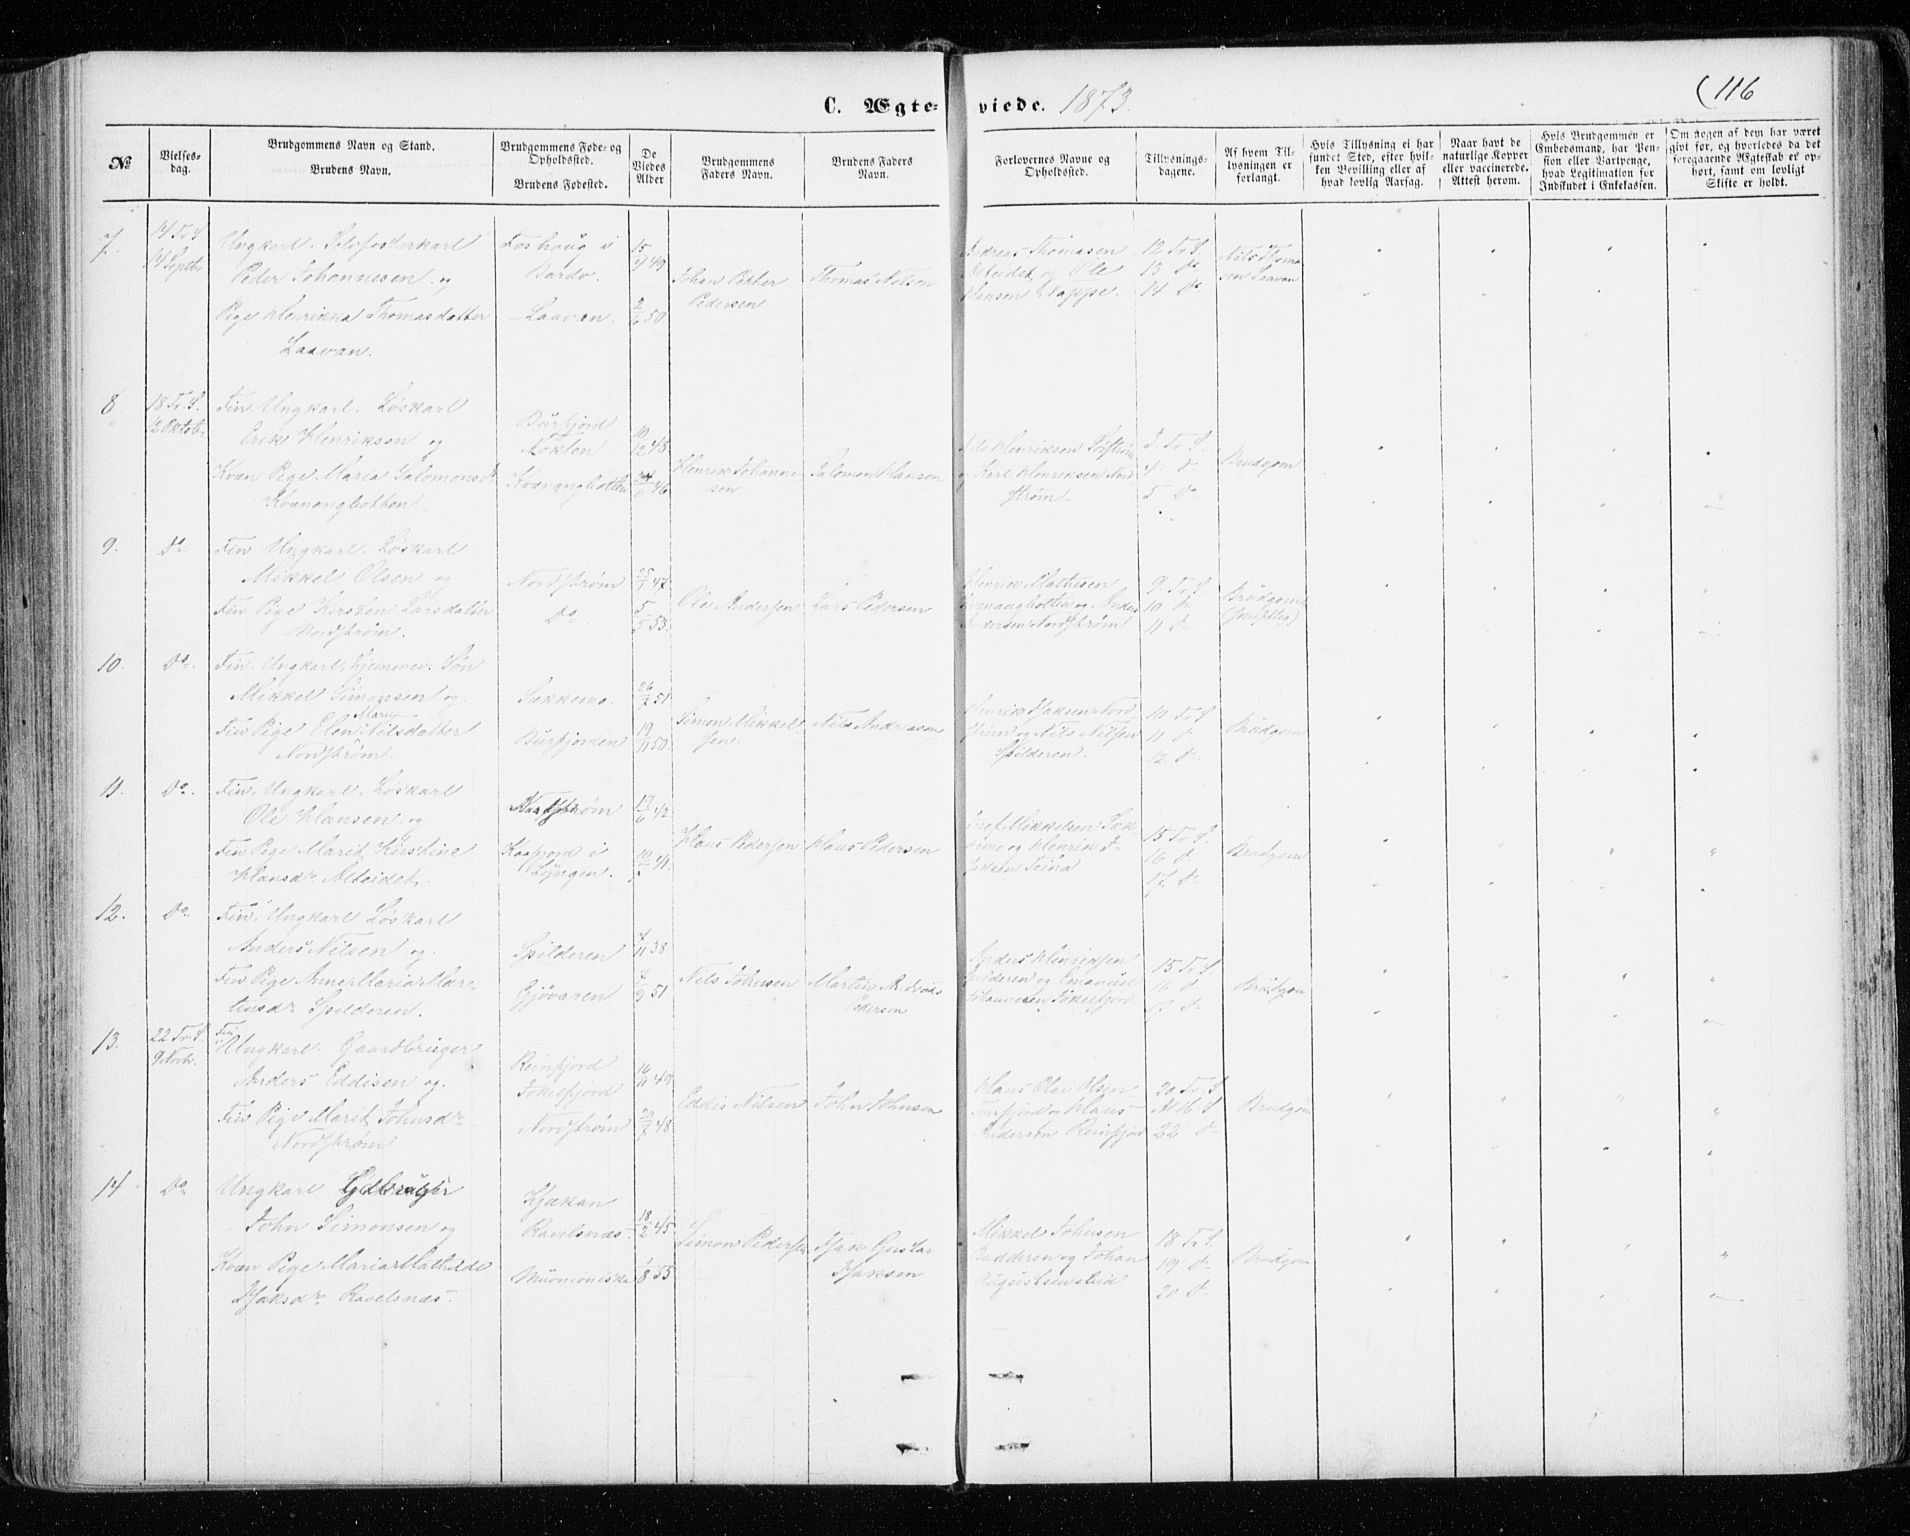 C. Ægte-
viede. 1873.
116
№
Vielses-
dag.
Brudgommens Navn og Stand.
Brudens Navn.
Brudgommens Føde- og
Opholdssted.
Brudens Fødested.
De
Viedes
Alder
Brudgommens
Faders Navn.
Brudens Faders
Navn.
Forlovernes Navne og
Opholdssted.
Tillysnings-
dagene.
Af hvem Til-
lysningen er
forlangt.
Hvis Tillysning ei har
fundet Sted, efter hvil-
ken Bevilling eller af
hvad lovlig Aarsag.
Naar havt de
naturlige Kopper
eller vaccinerede.
Attest herom.
Hvis Brudgommen er
Embedsmand, har Pen-
sion eller Vartpenge,
hvad Legitimation for
Indskudet i Enkekassen.
Om Nogen af dem har været
givt før, og hvorledes da det
foregaaende Ægteskab er op-
hørt, samt om lovligt
Skifte er holdt.
7.
14 Tr. S
14 Septbr
Ungkarl.
Peder Johannesen og
Pige Henrikka Thomasdatter
Laavan.
Foshoug i
Bardo.
Laavan.
15/9 49
2/6 50
Johan Petter
Pedersen
Thomas Nilsen
Andreas Thomasen
Alteidet og Ole
Hansen
12 Tr. S.
13 Do
14 Do
Nils Thoma
sen Laavan
8
18 Tr. S.
12 Oktob.
Fin Ungkarl. Løskarl
Erik Henriksen og
Kvæn Pige Maria Salomonsdr
Kvænangbotten.
Burfjord
Kvænangbotten
10/12 48
24/6 46
Henrik Johanne
sen
Salomon Hansen
Nils Henriksen
og Karl Henriksen Nord
strøm.
3 Tr. S.
4 D
5 Do
Brudgom
9.
Do.
Fin Ungkarl. Løskarl
Mikkel Olsen og
Fin Pige Kirsten Larsdatter
Nordstrøm.
Nordstrøm
Do
25/1 47.
5/5 53.
Ole Andersen
Lars Pedersen
Henrik Mathisen
Kvænangbotten og Anders
Andersen Nordstrøm
9 Tr. S
10 D
11 D
Brudgom
(skriftlig)
10.
Do.
Fin Ungkarl, hjemmev. Søn
Mikkel Simonsen og
Fin Pige Elen Marie Nilsdatter
Nordstrøm.
Sækkemo.
Burfjorden
26/7 51
19/11 50.
Simon Mikkel-
sen.
Nils Andreasen
Henrik Isaksen Nord
strøm og Nils Nilsen
Spilderen.
10 Tr. S
11 D
12 D
Brudgom
11.
Do.
Fin Ungkarl. Løskarl
Ole Hansen og
Fin Pige Marit Kirstine
Hansdr Alteidet.
Nordstrøm
Kaafjord i
Lyngen.
19/6 42
Hans Pedersen
Hans Pedersen
Mikkelsen Sæk
kemo og Henrik
15 Tr. S.
16 D
17 D
Brudgom
12.
Do.
Fin Ungkarl Løskarl
Anders Nilsen og
Fin Pige Anne Maria Mar-
tensdr Spilderen.
Spilderen
Gjøvaren
7/11 38
7/9 51
Nils Johnsen
Martin Andreas
Pedersen
Anders Henriksen
Spilderen og Emanuel
Johannesen Jøkelfjord
15 Tr. S
16 D
17 D
Brudgom
13.
22 Tr. S
9 Novbr.
Fin
Ungkarl. Gaardbruger
Anders Eddisen og
Fin Pige Marit Johnsdr
Nordstrøm
Reinfjord
Jøkelfjord
Nordstrøm
16/11 49
20/7 48
Eddis Nilsen
John Johnsen
Hans Olai Olsen
Hans
Andersen Reinfjord
20 Tr. S
22 D
Brudgom
14
Do
Ungkarl Gdbruger
John Simonsen og
Kvæn Pige Maria Mathilde
Isaksdr Ravelsnæs.
Kjækan
Ravelsnæs.
Muonioniska
18/2 45
Simon Pedersen
Isak Gustav
Isaksen
Mikkel Johnsen
Badderen og Johan
Augustsen
18 Tr. S
19 D
20 D
Brudgom